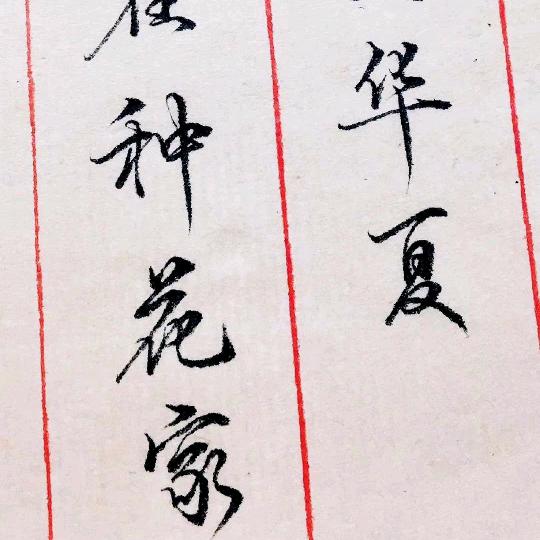 华夏
在种花家